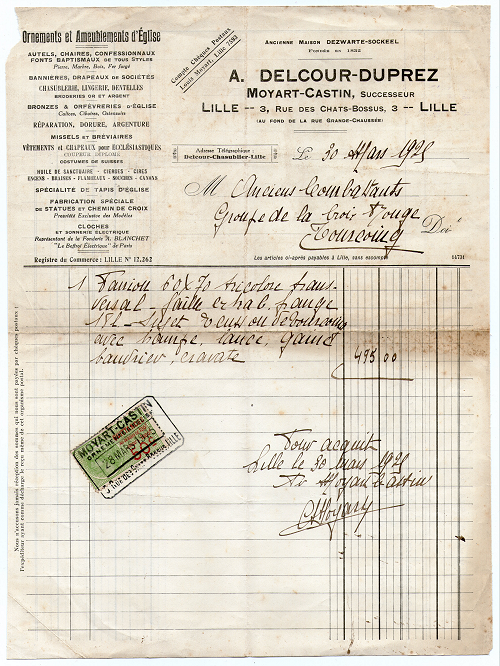 Ornements et Ameublements d'Église
AUTELS, CHAIRES, CONFESSIONNAUX
FONTS BAPTISMAUX DE TOUS STYLES
Pierre, Marbre, Bois, Fer forgé
BANNIÈRES, DRAPEAUX DE SOCIÉTÉS
CHASUBLERIE, LINGERIE, DENTELLES
BRODERIES OR ET ARGENT
BRONZES & ORFÈVRERIES D'ÉGLISE
Calices, Ciboires, Ostensoirs
RÉPARATION, DORURE, ARGENTURE
MISSELS ET BRÉVIAIRES
VÊTEMENTS et CHAPEAUX pour ECCLÉSIASTIQUES
COUPEUR DIPLOMÉ
COSTUMES DE SUISSES
HUILE DE SANCTUAIRE - CIERGES - CIRES
ENCENS - BRAISES - FLAMBEAUX - SOUCHES - CANONS
SPÉCIALITÉ DE TAPIS D'ÉGLISE
FABRICATION SPÉCIALE
DE STATUES ET CHEMIN DE CROIX
Propriété Exclusive des Modèles
CLOCHES
ET SONNERIE ÉLECTRIQUE
Représentant de la Fonderie A. BLANCHET
"Le Beffroi Électrique" de Paris
Registre du Commerce : LILLE N° 12.262
Compte Chèques Postaux
Louis Moyart, Lille 7583
ANCIENNE MAISON DEZWARTE-SOCKEEL
FONDÉE EN 1832
A. DELCOUR-DUPREZ
MOYART-CASTIN, SUCCESSEUR
LILLE -- 3, RUE DES CHATS-BOSSUS, 3 -- LILLE
(AU FOND DE LA RUE GRANDE-CHAUSSÉE)
Adresse Télégraphique :
Delcour-Chasublier-Lille
Le 30 Mars 1925
M Anciens Combattants
Groupe de la Croix Rouge
Tourcoing Doit
Les articles ci-après payables à Lille, sans escompte
1 Fanion 60 x 70 tricolore trans-
versal, faille et hab. frange
avec hampe, lance, gaine
baudrier, cravate 495 00
MOYART-CASTIN
28 MAR
3, RUE DES CHATS-BOSSUS LILLE
Pour acquit
Lille le 30 mars 1925
Moyart Castin
Nous n'accusons jamais réception des sommes qui nous sont payées par chèques postaux :
l'expéditeur ayant comme décharge le reçu même de cet organisme postal.